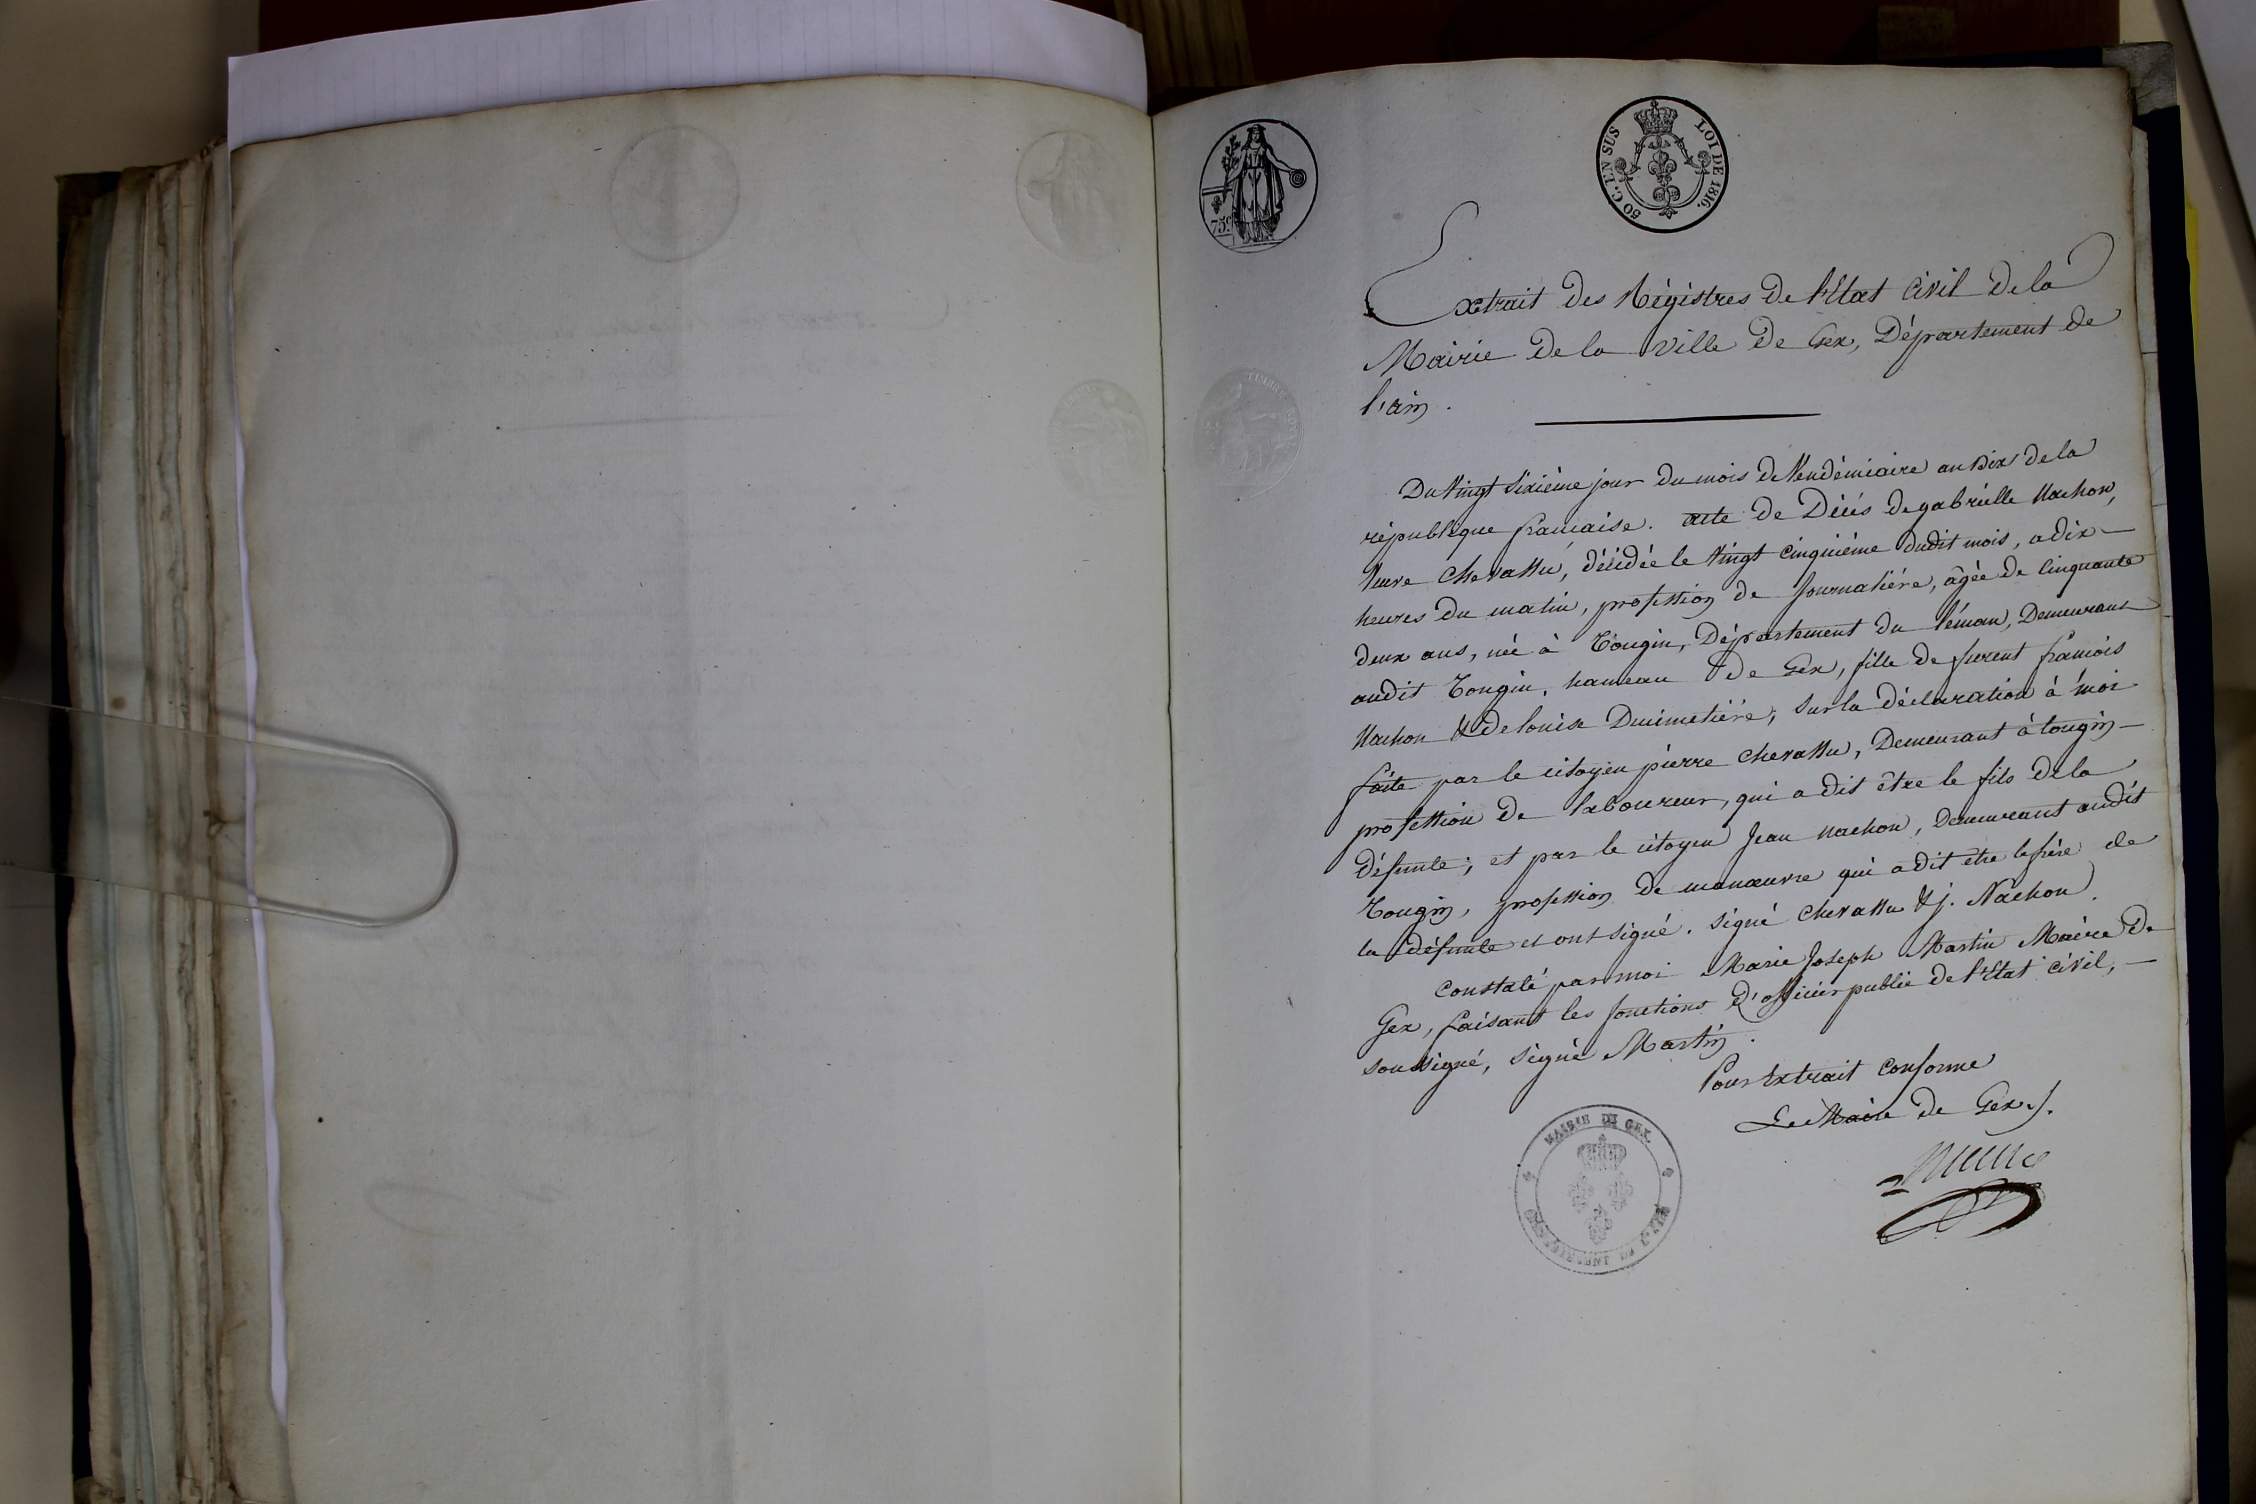 75c.
50 C. EN SUS LOI DE 1816.
TIMBRE ROYAL
Extrait des Régistres de l'Etat Civil de la
Mairie de la Ville de Gex, Département de
l'ain.
Du Vingt Sixième jour du mois de Vendémiaire an Dix de la
république francaise. acte de Décès de gabrielle Nachon,
veuve Chevassu, décédée le Vingt cinquiéme dudit mois, a dix
heures du matin, profession de Journaliére, âgée de Cinquante
deux ans, née à Tougin, Département du Léman, Demeurant
audit Tougin, hameau de Gex, fille de furent francois
Nachon & de louise Ducimetiére, Sur la déclaration à moi
faite par le citoyen pierre Chevassu, Demeurant à tougin
profession de laboureur, qui a dit être le fils de la
défunte; et par le citoyen Jean nachon, Demeurant audit
Tougin, profession de manœuvre qui a dit être le frère de
la défunte et ont signé. Signé Chevassu & j. Nachon.
Constaté par moi Marie Joseph Martin Maire de
Gex, faisant les fonctions d'officier public de l'Etat civil,
soussigné, Signé Martin.
Pour Extrait conforme
Le Maire de Gex.
MAIRIE DE GEX